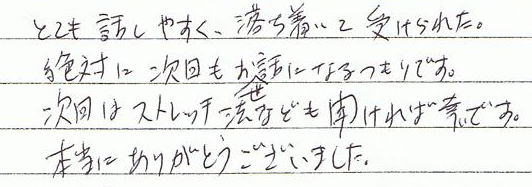 とても話しやすく、落ち着いて受けられた。
絶対に次回もお世話になるつもりです。
次回はストレッチ法なども聞ければ幸いです。
本当にありがとうございました。